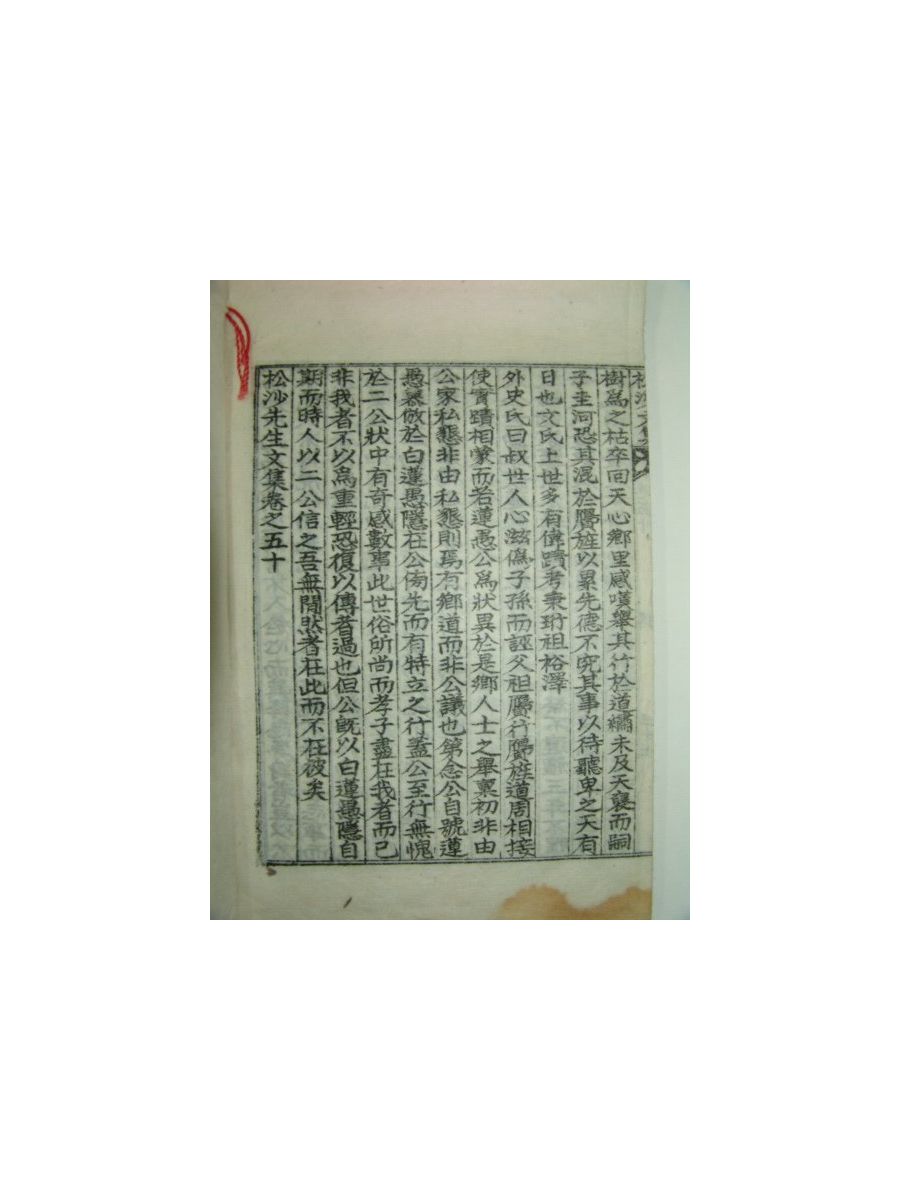 松沙文集
樹爲之枯卒回天心鄕里感嘆舉其行於道繡未及天襃而嗣
子圭河恐其混於贗旌以累先德不究其事以待聽卑之天有
日也文氏上世多有偉蹟考秉珩祖裕澤
外史氏曰叔世人心滋僞子孫而誣父祖贗行贗旌道周相接
使實蹟相蒙而若蓮愚公爲狀異於是鄕人士之舉稟初非由
公家私懇非由私懇則焉有鄕道而非公議也第念公自號蓮
愚慕倣於白蓮愚隱在公傍先而有特立之行蓋公至行無愧
於二公狀中有奇感數事此世俗所尚而孝子盡在我者而已
非我者不以爲重輕恐復以傳者過也但公旣以白蓮愚隱自
期而時人以二公信之吾無間然者在此而不在彼矣
松沙先生文集卷之五十